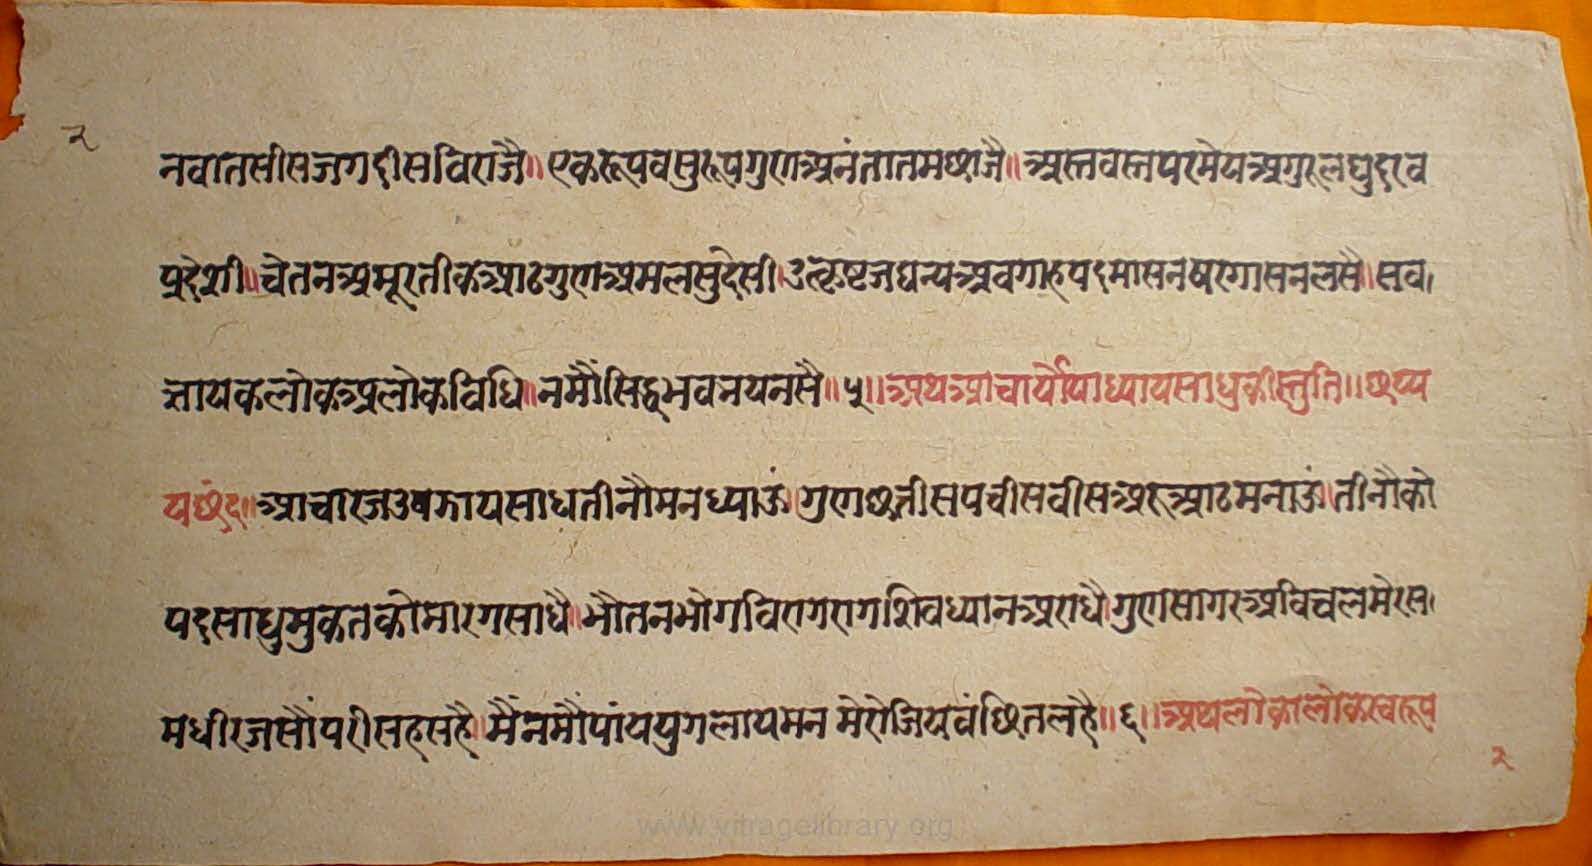 २
नवातसीसजगदीसविराजै॥एकरूपवसुरूपगुणअनंतातमछाजै॥अस्तवस्तपरमेयअगुरलघुदरव
प्रदेशी॥चेतनअमूरतीकआठगुणअमलसुदेसी॥उत्कृष्टजघन्यअवगाहपदमासनषरगासनलसै॥सव
ज्ञायकलोकअलोकविधि॥नमौंसिद्धभवभयनसै॥५॥अथआचार्योपाध्यायसाधुकीस्तुति॥छप्प
यछंद॥आचारजउवझायसाधतीनौमनध्याऊं॥गुणछत्तीसपचीसवीसअरुआठमनाऊं॥तीनौको
पदसाधुमुकतकोमारगसाधै॥भौतनभोगविरागरागशिवध्यानअराधै॥गुणसागरअविचलमेरस
मधीरजसौंपरीसहसहै॥मैंनमौंपांययुगलायमनमेरोजियवंछितलहै॥६॥अथलोकालोकस्वरूप
२
www.vitragelibrary.org